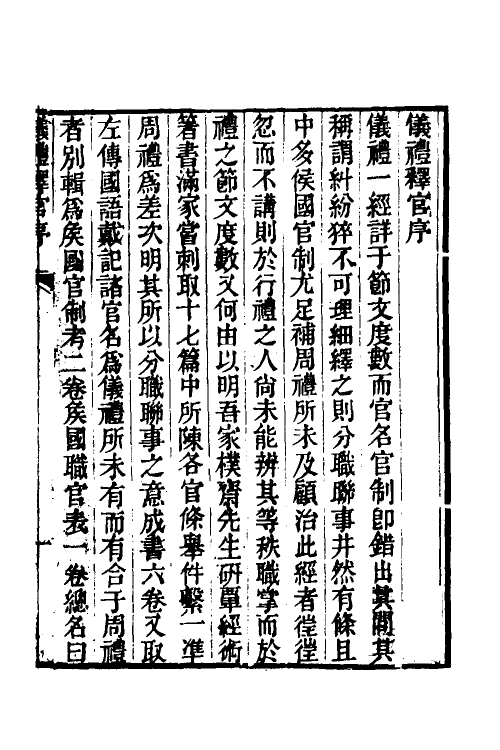 儀禮釋官序
儀禮一經詳于節文度數而官名官制卽錯出其閒其
稱謂糾紛猝不可理細繹之則分職聯事井然有條且
中多侯國官制尤足補周禮所未及顧治此經者徃徃
忽而不講則於行禮之人尙未能辨其等秩職掌而於
禮之節文度數又何由以明吾家樸齋先生硏覃經術
箸書滿家嘗刺取十七篇中所陳各官條舉件繫一準
周禮爲差次明其所以分職聯事之意成書六卷又取
左傳國語戴記諸官名爲儀禮所未有而有合于周禮
者別輯爲矦國官制考二卷矦國職官表一卷總名曰
儀禮釋官序
一